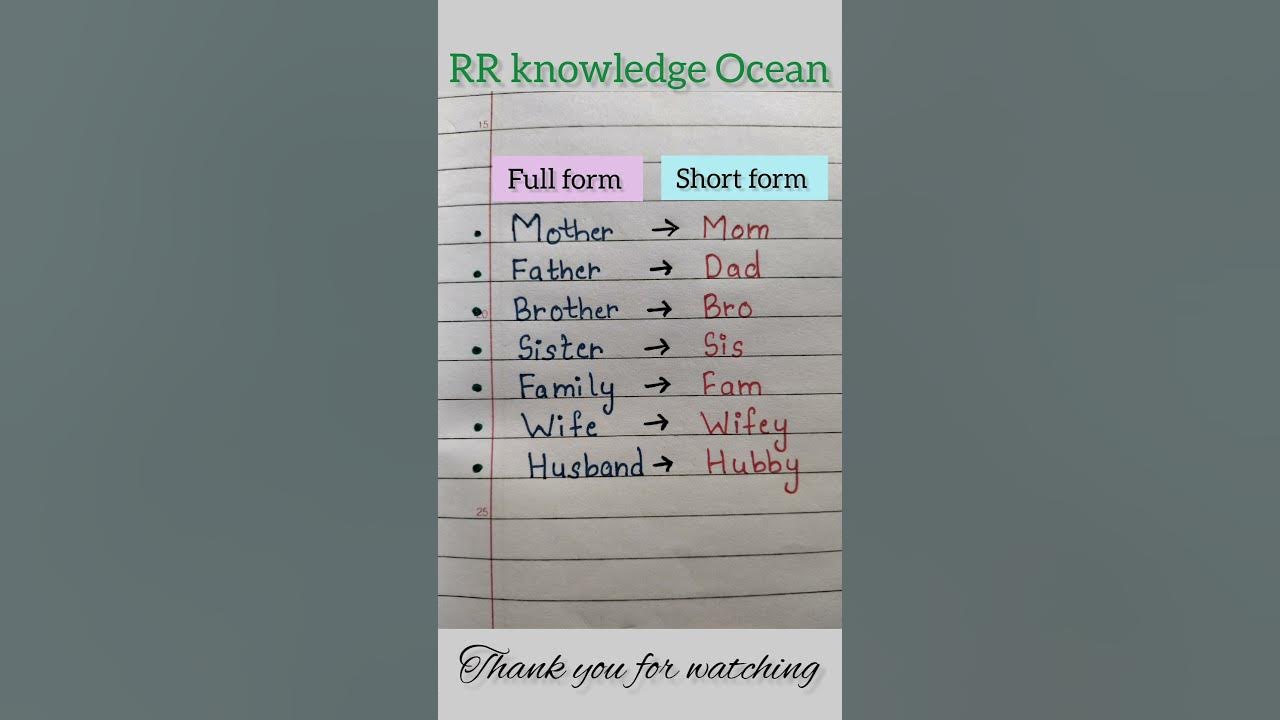 RR knowledge Ocean
15
Full form Short form
• Mother → Mom
• Father → Dad
• Brother → Bro
• Sister → Sis
• Family → Fam
• Wife → Wifey
• Husband → Hubby
25
Thank you for watching